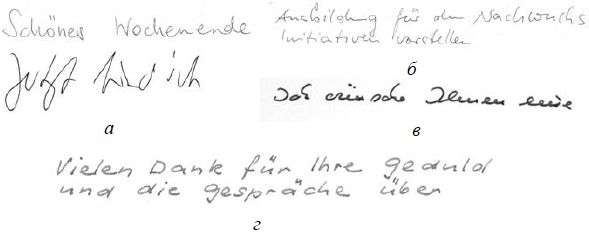 Schönes Wochenende
Jetzt ich
а
Ausbildung für den Nachwuchs
Initiativen vorstellen
б
Ich wünsche Ihnen eine
в
Vielen Dank für Ihre geduld
und die gespräche über
г